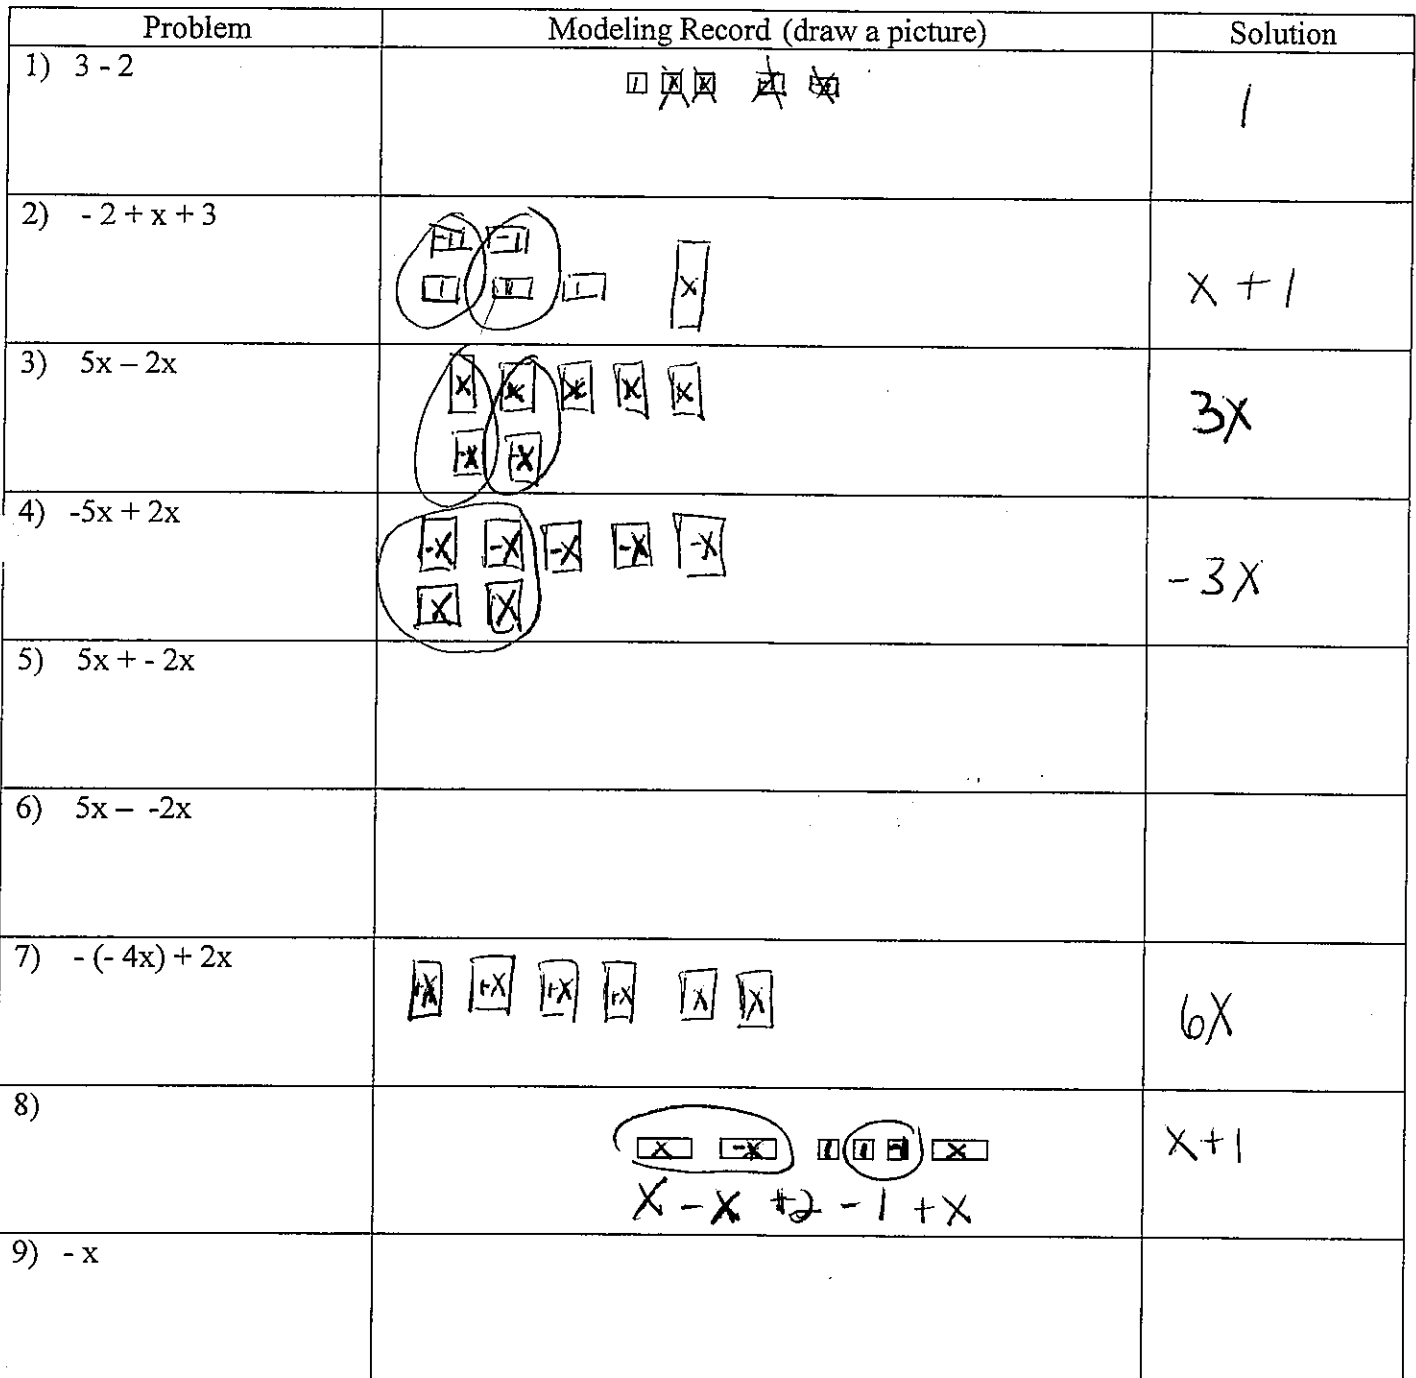 Problem Modeling Record (draw a picture) Solution
1) 3 - 2
1 1
2) - 2 + x + 3
-1 -1
1 1 1 x
x + 1
3) 5x – 2x
x x x x x
-x -x
3x
4) -5x + 2x
-x -x -x -x -x
x x
-3x
5) 5x + - 2x
6) 5x – -2x
7) - (- 4x) + 2x
+x +x +x +x x x
6x
8)
x -x 1 1 -1 x
x - x + 2 - 1 + x
x + 1
9) - x